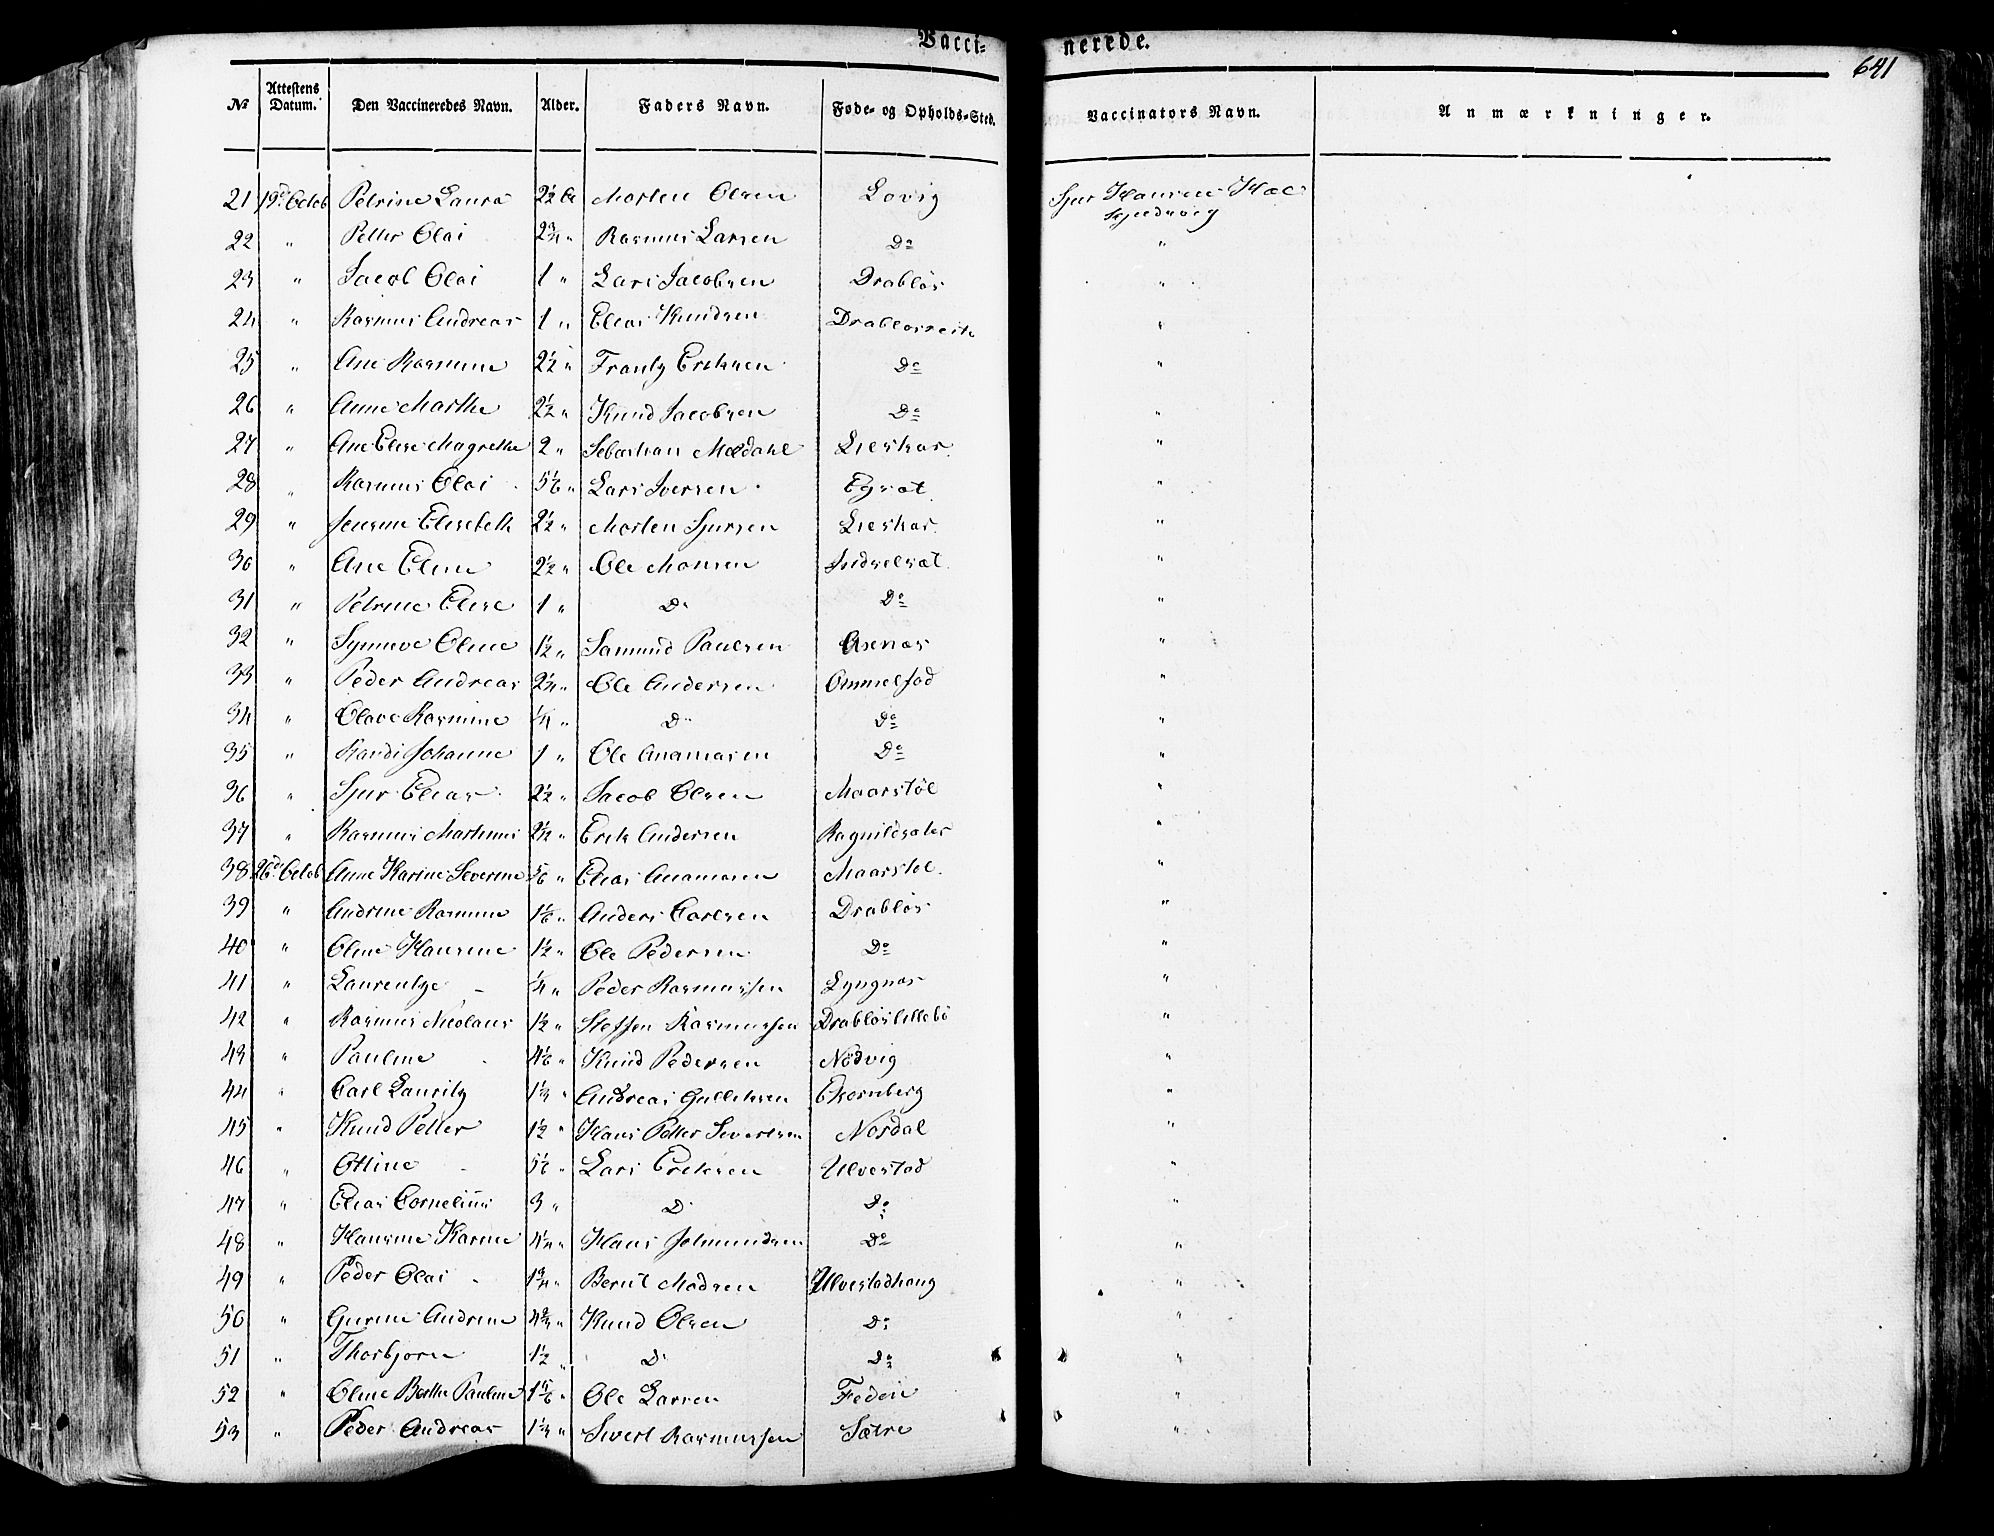 Vacci- nerede.
641
No Attestens Datum. Den Vaccineredes Navn. Alder. Faders Navn. Føde- og Opholds-Sted. Vaccinators Navn. Anmærkninger.
21 19de Octob Petrine Laura 2½ Morten Olsen Lovig Sjur Hansen
22 " Petter Olai 2¾ " Rasmus Larsen Do "
23 " Jacob Olai 1 " Lars Jacobsen Drabløs "
24 " Rasmus Andreas 1 " Elias Knudsen "
25 " Ane Rasmine 2½ " Frantz Eriksen Do "
26 " Anne Marthe 2½ " Knud Jacobsen Do "
27 " Ane Elise Magrethe 2 " Sebastian Mældahl Lieskar "
28 " Rasmus Olai 5⅙ " Lars Iversen "
29 " Jensine Elisebeth 2½ " Morten Sjursen Lieskar "
30 " Ane Eline 2½ " Ole Monsen "
31 " Petrine Elise 1 " Do Do "
32 " Synneve Oline 1½ " Samund Paulsen Asenæs "
33 " Peder Andreas 2¼ " Ole Andersen "
34 " Olave Rasmine ¼ " Do Do "
35 " Randi Johanne 1 " Ole Anamasen Do "
36 " Sjur Elias 2½ " Jacob Olsen Maarstøl "
37 " Rasmus Martinus 2½ " Erik Andersen Ragnildsæter "
38 26de Octob Anne Karine Severine ⅚ " Elias Anamasen Maarstøl "
39 " Andrine Rasmine 1⅙ " Anders Carlsen Drabløs "
40 " Oline Hansine 1½ " Ole Pedersen Do "
41 " Laurentze ¼ " Peder Rasmussen Lyngnæs "
42 " Rasmus Nicolaus 1½ " Steffen Rasmussen Drabløslillebø "
43 " Pauline 4⅙ " Knud Pedersen Nødvig "
44 " Carl Lauritz 1⅓ " Andreas Gulliksen Ekornberg "
45 " Knud Petter 1½ " Hans Petter Severtsen Nosdal "
46 " Otline 5⅙ " Lars Eriksen Ulvestad "
47 " Elias Cornelius 3 " Do Do "
48 " Hansine Karine 4¼ " Hans Jetmundsen Do "
49 " Peder Olai 1¾ " Bernt Madsen Ulvestadhaug "
50 " Gurine Andrine 4¾ " Knud Olsen Do "
51 " Thorbjørn 1½ " Do Do "
52 " Oline Berthe Pauline 1⅚ " Ole Larsen "
53 " Peder Andreas 1⅓ " Sivert Rasmussen Sætre "